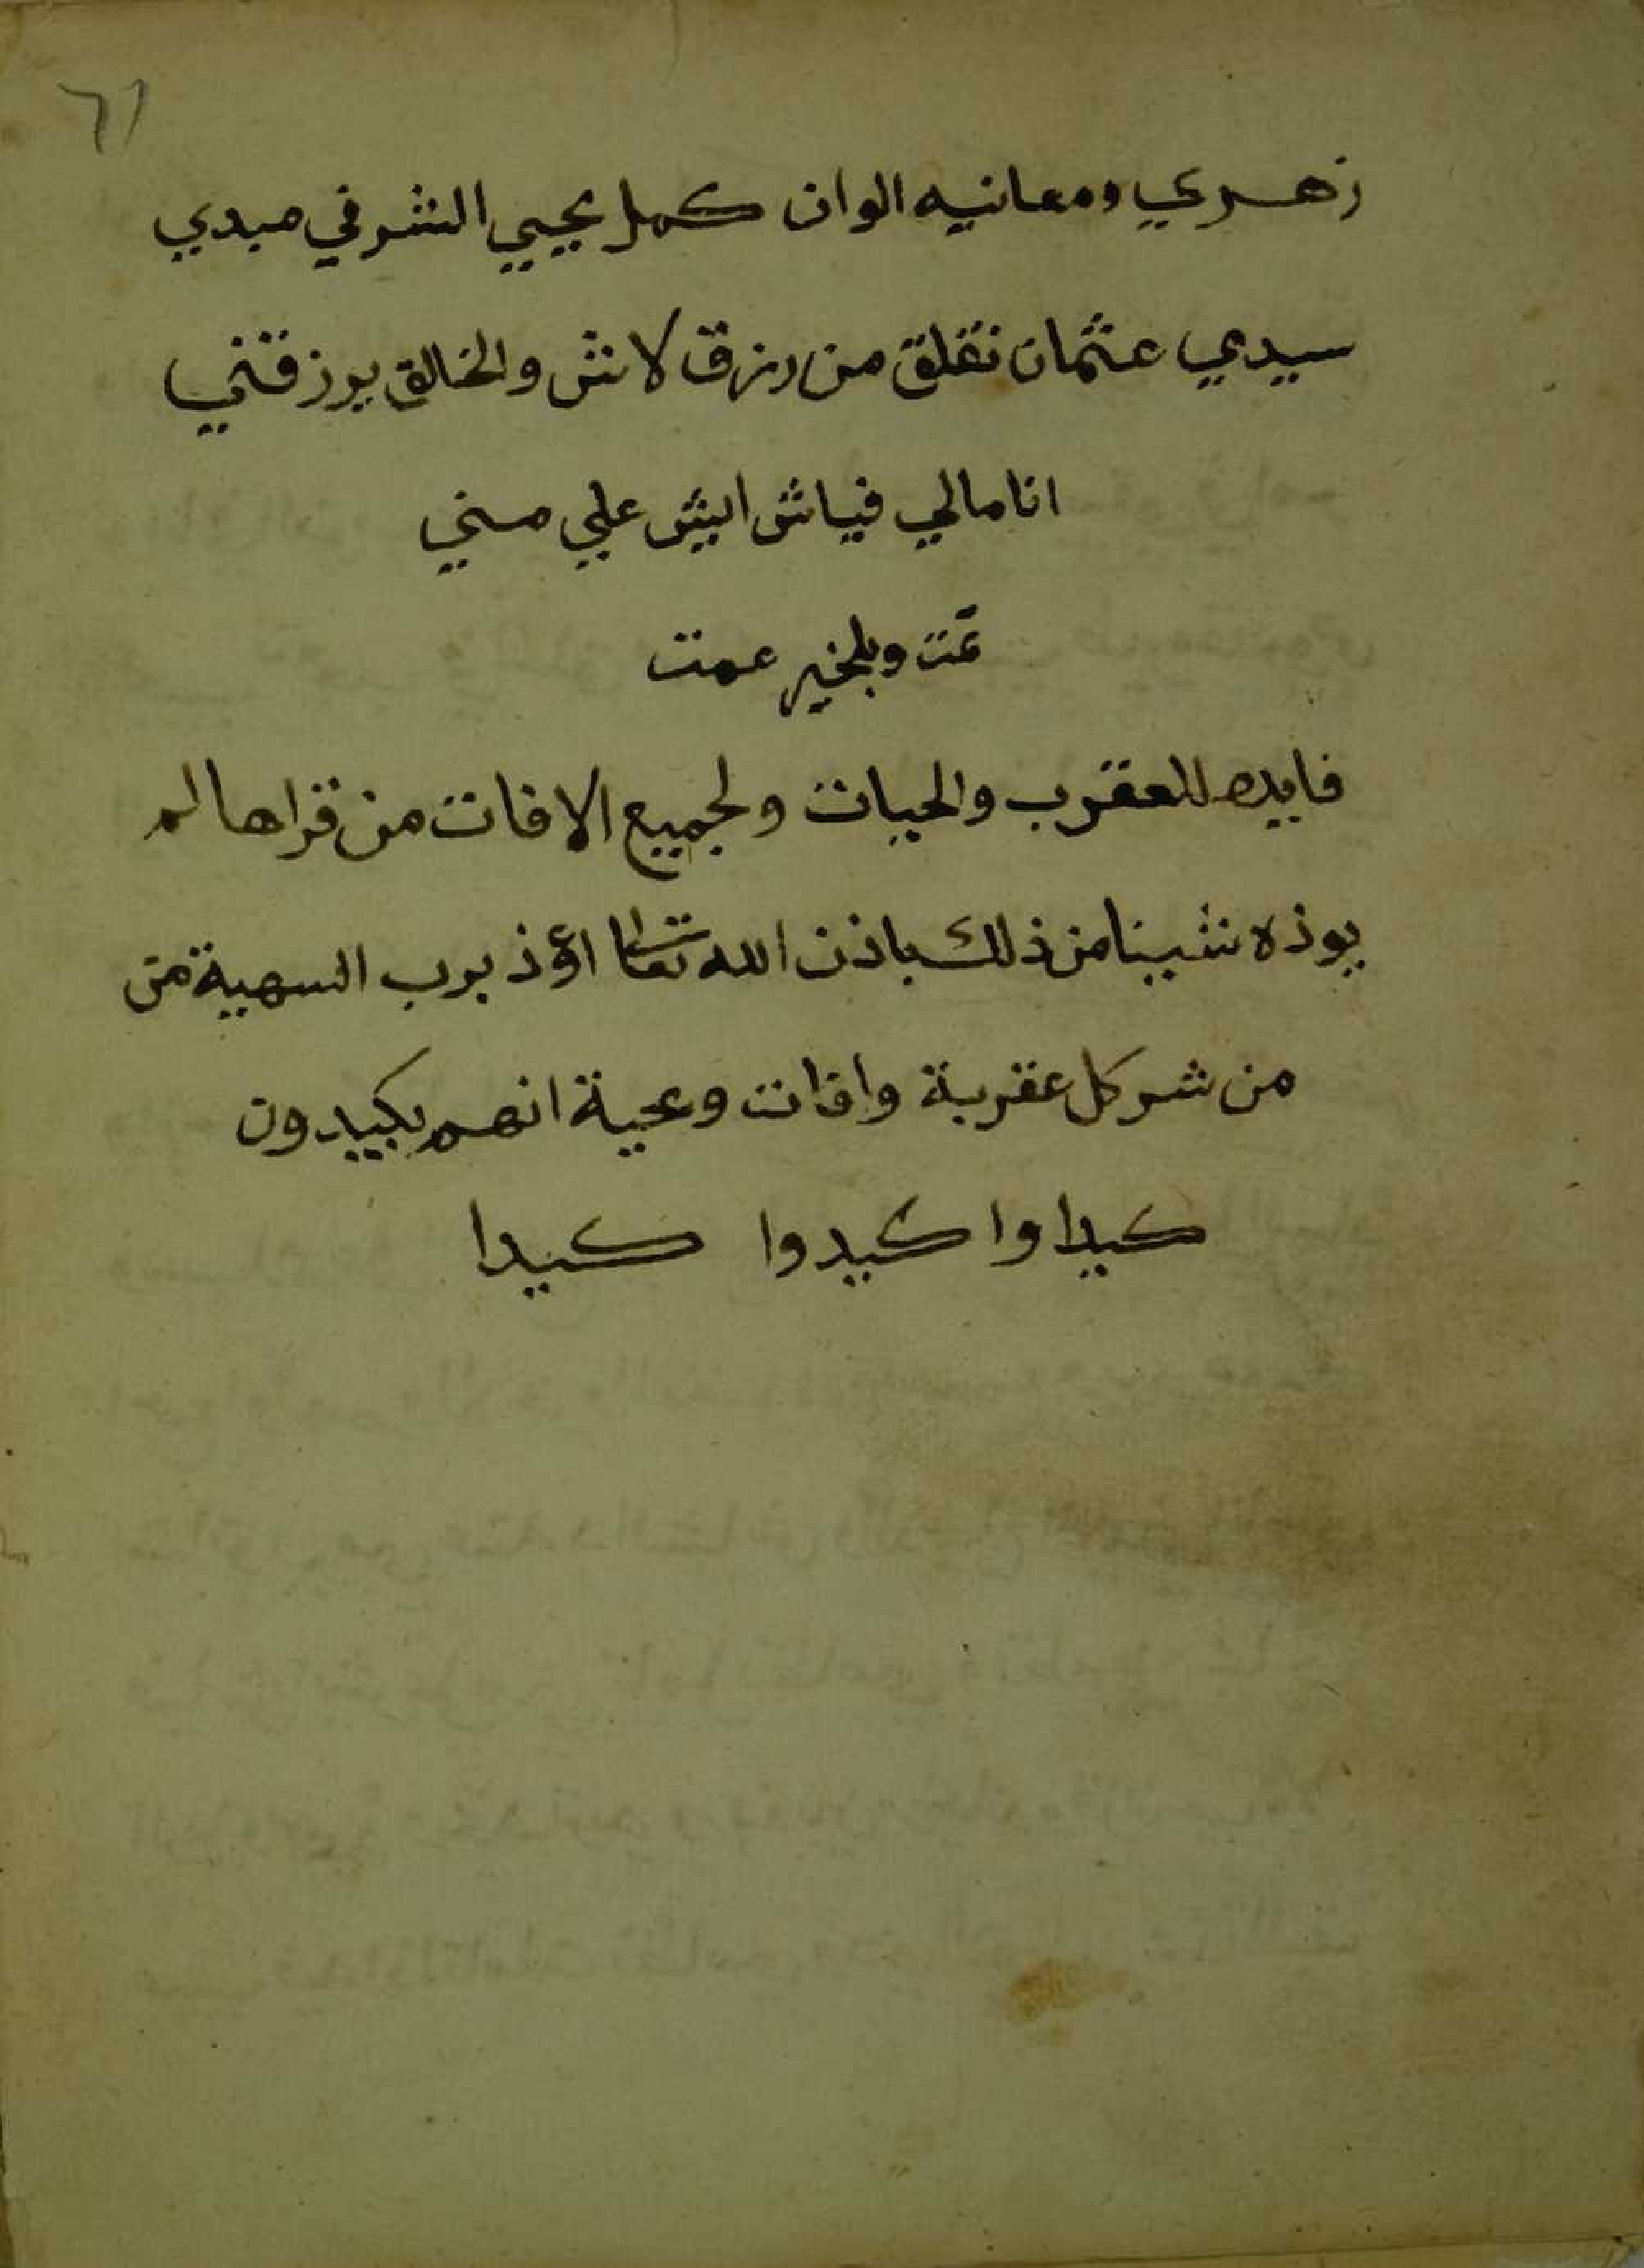 ٦١
زهري ومعانيه الوان كمل يحيي الشرفي ميدي
سيدي عثمان نقلق من رزق لاش والخالق يرزقني
انا مالي فياش ايش علي مني
تمت وبلخير عمت
فايده للعقرب والحيات ولجميع الافات من قراها لم
يوذه شيئا من ذلك باذن الله تعالى اعوذ برب السهية من
من شر كل عقربة وافات وحية انهم يكيدون
كيدا وا كيدوا كيدا